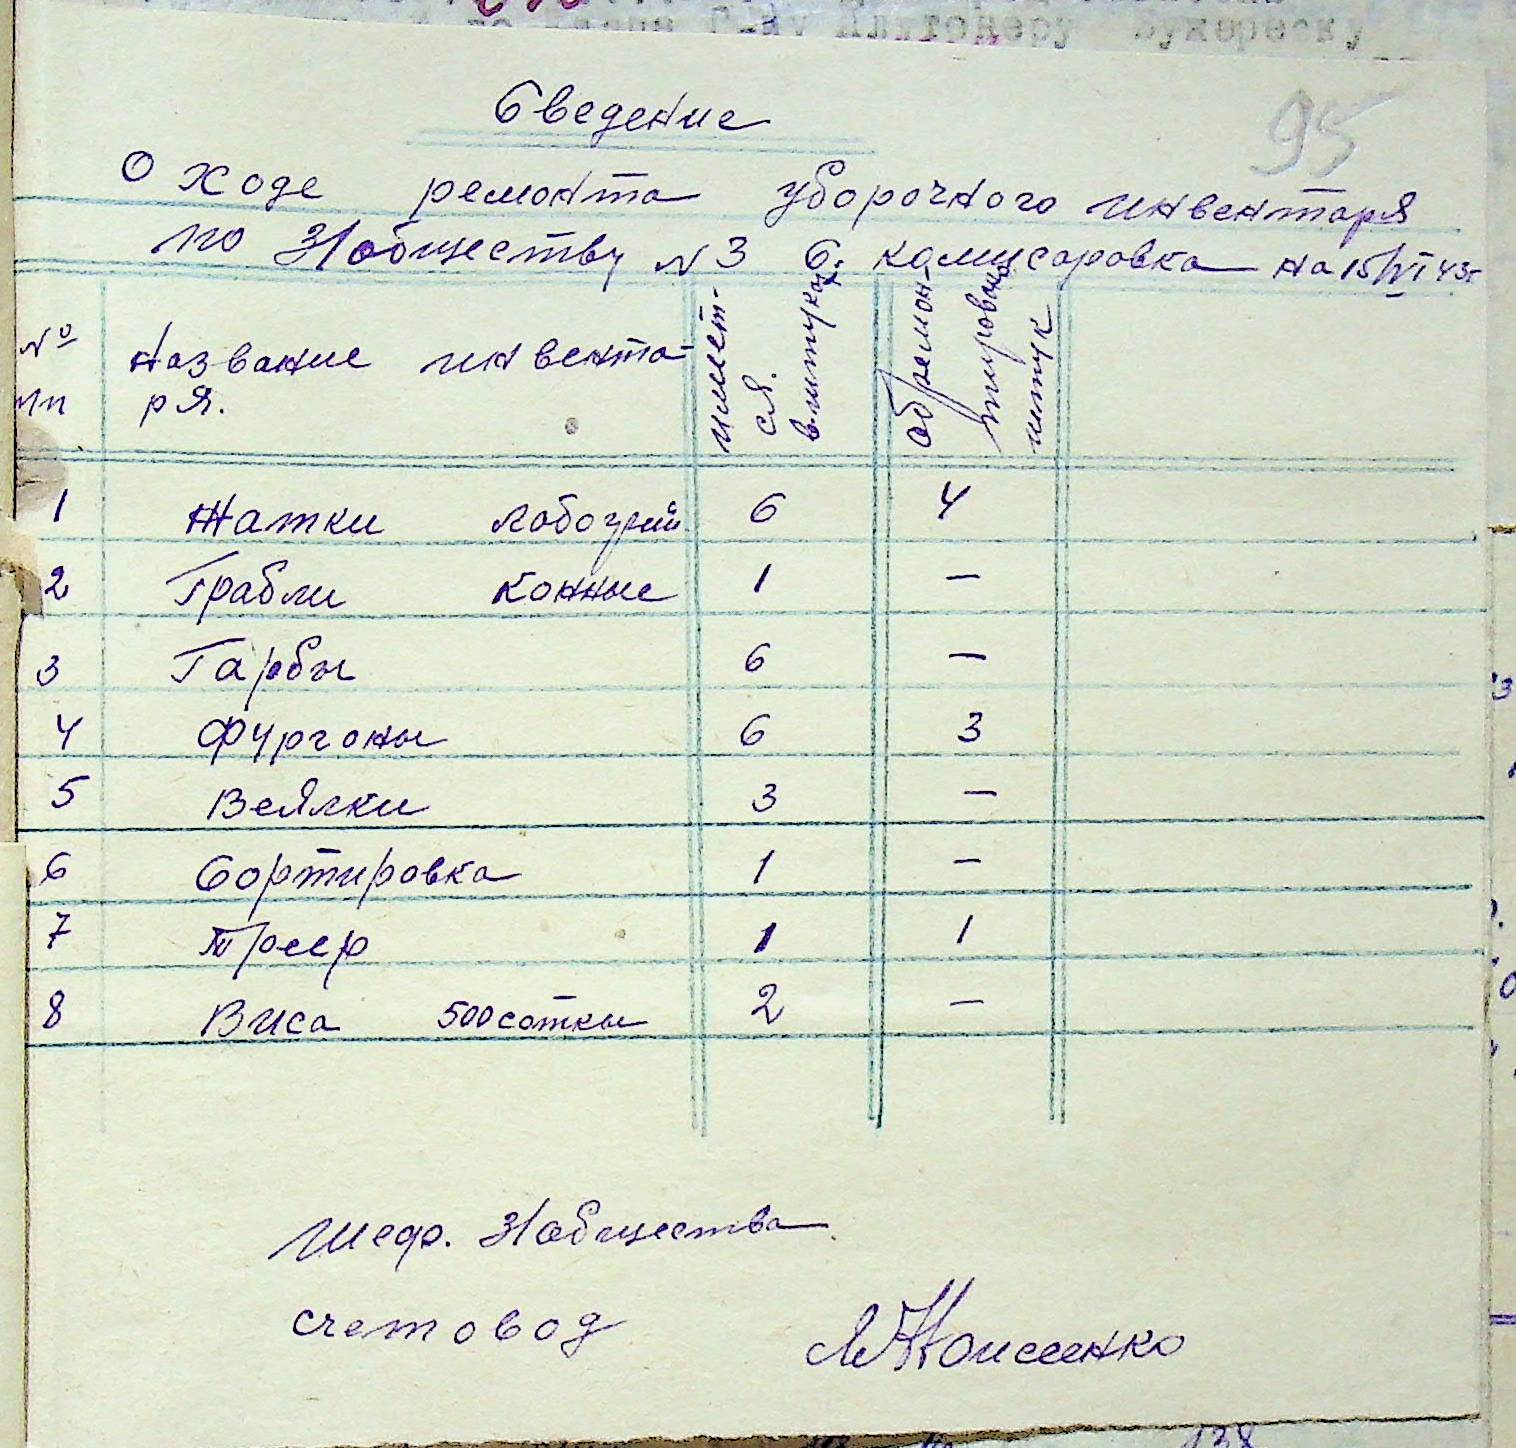 Сведение
95
О ходе ремонта уборочного инвентаря
по З/обществу № 3 С. комисаровка на 15/VI 43г
№ пп
Название инвента-
ря.
имеет-
ся.
в штуках
обремон-
тировано
штук
1 Жатки лобогрий 6 4
2 Грабли конные 1 —
3 Гарбы 6 —
4 Фургоны 6 3
5 Веялки 3 —
6 Сортировка 1 —
7 Триер 1 1
8 Виса 500 соткы 2 —
Шеф. З/общества
счетовод